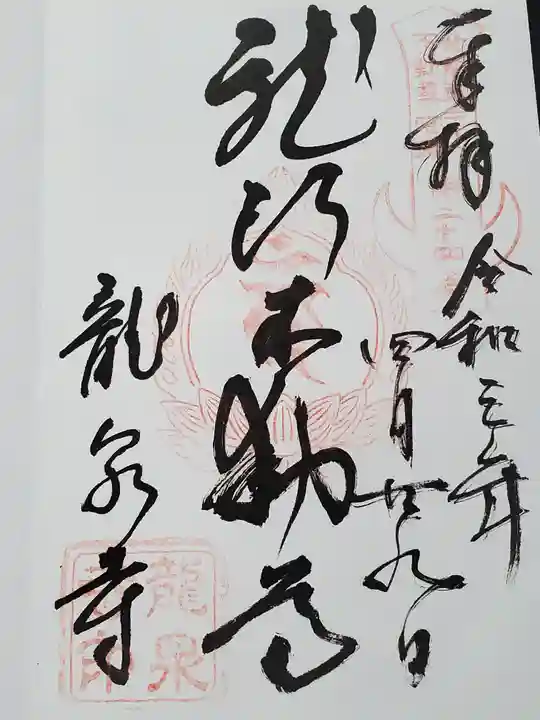 奉拝 令和三年
四月廿九日
龍頂不動尊
龍泉寺
龍泉
寺印